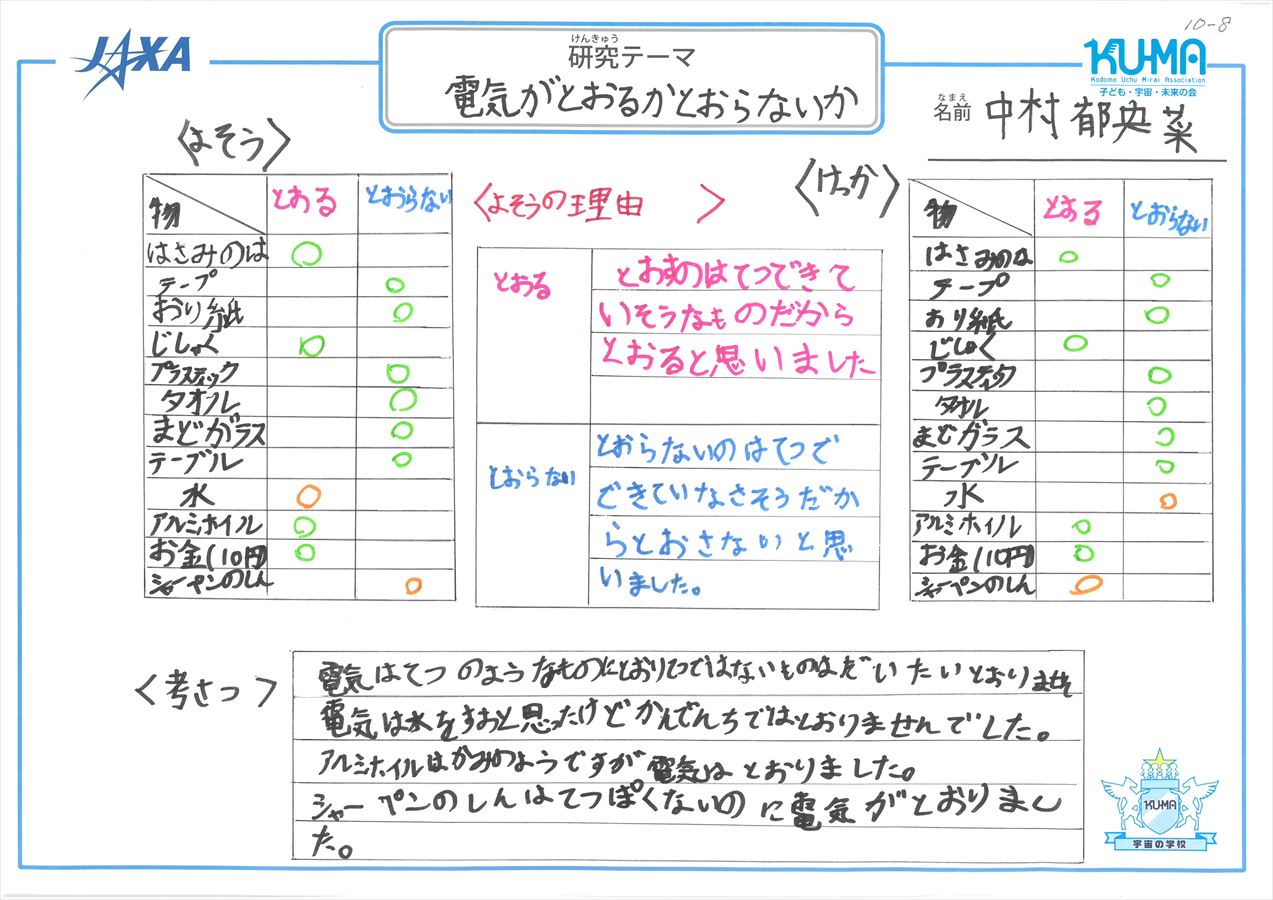 10-8
JAXA
けんきゅう
研究テーマ
電気がとおるかとおらないか
KU-MA
Kodomo Uchu Mirai Association
子ども・宇宙・未来の会
なまえ
名前 中村郁央菜
〈よそう〉
物 とおる とおらない
はさみのは ○
テープ ○
おり紙 ○
じしゃく ○
プラスティック ○
タオル ○
まどガラス ○
テーブル ○
水 ○
アルミホイル ○
お金(10円) ○
シャーペンのしん ○
〈よそうの理由 〉
とおる
とおすのはてつできて
いそうなものだから
とおると思いました
とおらない
とおらないのはてつで
できていなさそうだか
らとおさないと思
いました。
〈けっか〉
物 とおる とおらない
はさみのは ○
テープ ○
おり紙 ○
じしゃく ○
プラスティック ○
タオル ○
まどガラス ○
テーブル ○
水 ○
アルミホイル ○
お金(10円) ○
シャーペンのしん ○
〈考さつ〉
電気はてつのようなものにとおりてつではないものはだいたいとおりません
電気は水をすおと思ったけどかんでんちではとおりませんでした。
アルミホイルはかみのようですが電気はとおりました。
シャーペンのしんはてつぽくないのに電気がとおりまし
た。
KU-MA
宇宙の学校